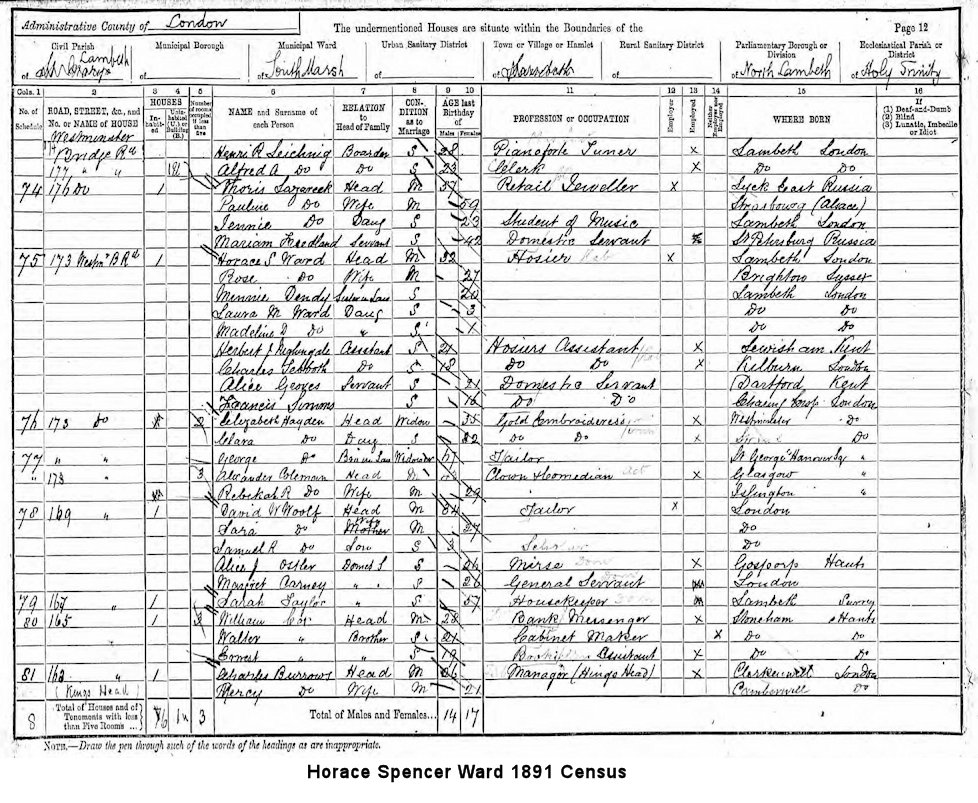 Administrative County of London The undermentioned Houses are situate within the Boundaries of the Page 12
Civil Parish Municipal Borough Municipal Ward Urban Sanitary District Town or Village or Hamlet Rural Sanitary District Parliamentary Borough or Division Ecclesiastical Parish or District
of St Mary Lambeth of of South Marsh of of of of North Lambeth of Holy Trinity
Cols. 1 2 3 4 5 6 7 8 9 10 11 12 13 14 15 16
No. of Schedule ROAD, STREET, &c., and No. or NAME of HOUSE HOUSES Inhabited Uninhabited (U.) or Building (B.) Number of rooms occupied if less than five NAME and Surname of each Person RELATION to Head of Family CONDITION as to Marriage AGE last Birthday of Males Females PROFESSION or OCCUPATION Employer Employed Neither Employer nor Employed WHERE BORN If (1) Deaf-and-Dumb (2) Blind (3) Lunatic, Imbecile or Idiot
Westminster
Bridge Rd Boarder S 28 Pianoforte Tuner x Lambeth London
177 " " Alfred A Do Do S 23 Clerk x Do Do
74 176 Do 1 Head M 57 Retail Jeweller x East Russia
Pauline Do Wife M 59 Strasbourg (Alsace)
Jennie Do Daug S 23 Student of Music Lambeth London
Mariam Servant S 42 Domestic Servant St Petersburg Russia
75 173 Westmr B Rd 1 Horace S Ward Head M 32 Hosier x Lambeth London
Rose Do Wife M 27 Brighton Sussex
Minnie Dendy Sister in Law S 20 Lambeth London
Laura M Ward Daug S 3 Do Do
Madeline D Do " S 1 Do Do
Herbert J Nightingale Assistant S 21 Hosiers Assistant x Lewisham Kent
Charles Tebboth Do S 18 Do Do x Kilburn London
Alice Servant S 21 Domestic Servant Dartford Kent
Francis Simons S 16 Do Do Charing Cross London
76 173 Do Elizabeth Hayden Head Widow 55 Gold Embroideress x Westminster Do
Clara Do Daug S 22 Do Do x Do
77 " " George Do Widower 67 Tailor St George Hanover Sq "
" 173 3 Alexander Coleman Head M Clown & Comedian x Glasgow "
Rebekah R Do Wife M 29 Islington "
78 169 " 1 David W Woolf Head M 34 Tailor x London
Sara Do Wife M 27 Do
Samuel R Do Son S 3 Scholar Do
Alice J Ostler Domes S S 26 Nurse x Gosport Hants
Margret Carney " " S 26 General Servant London
79 167 " 1 Sarah Taylor " S 57 Housekeeper Lambeth Surrey
80 165 1 William Cox Head M 28 Bank Messenger x Stoneham Hants
Walter " Brother S 21 Cabinet Maker x Do Do
Ernest " " S 19 Assistant x Do Do
81 163 " 1 Charles Burrows Head M 26 Manager (Kings Head) x Clerkenwell London
(Kings Head) Mercy Do Wife M 21 Camberwell Do
8 Total of Houses and of Tenements with less than Five Rooms ... 6 1u 3 Total of Males and Females... 14 17
NOTE.—Draw the pen through such of the words of the headings as are inappropriate.
Horace Spencer Ward 1891 Census